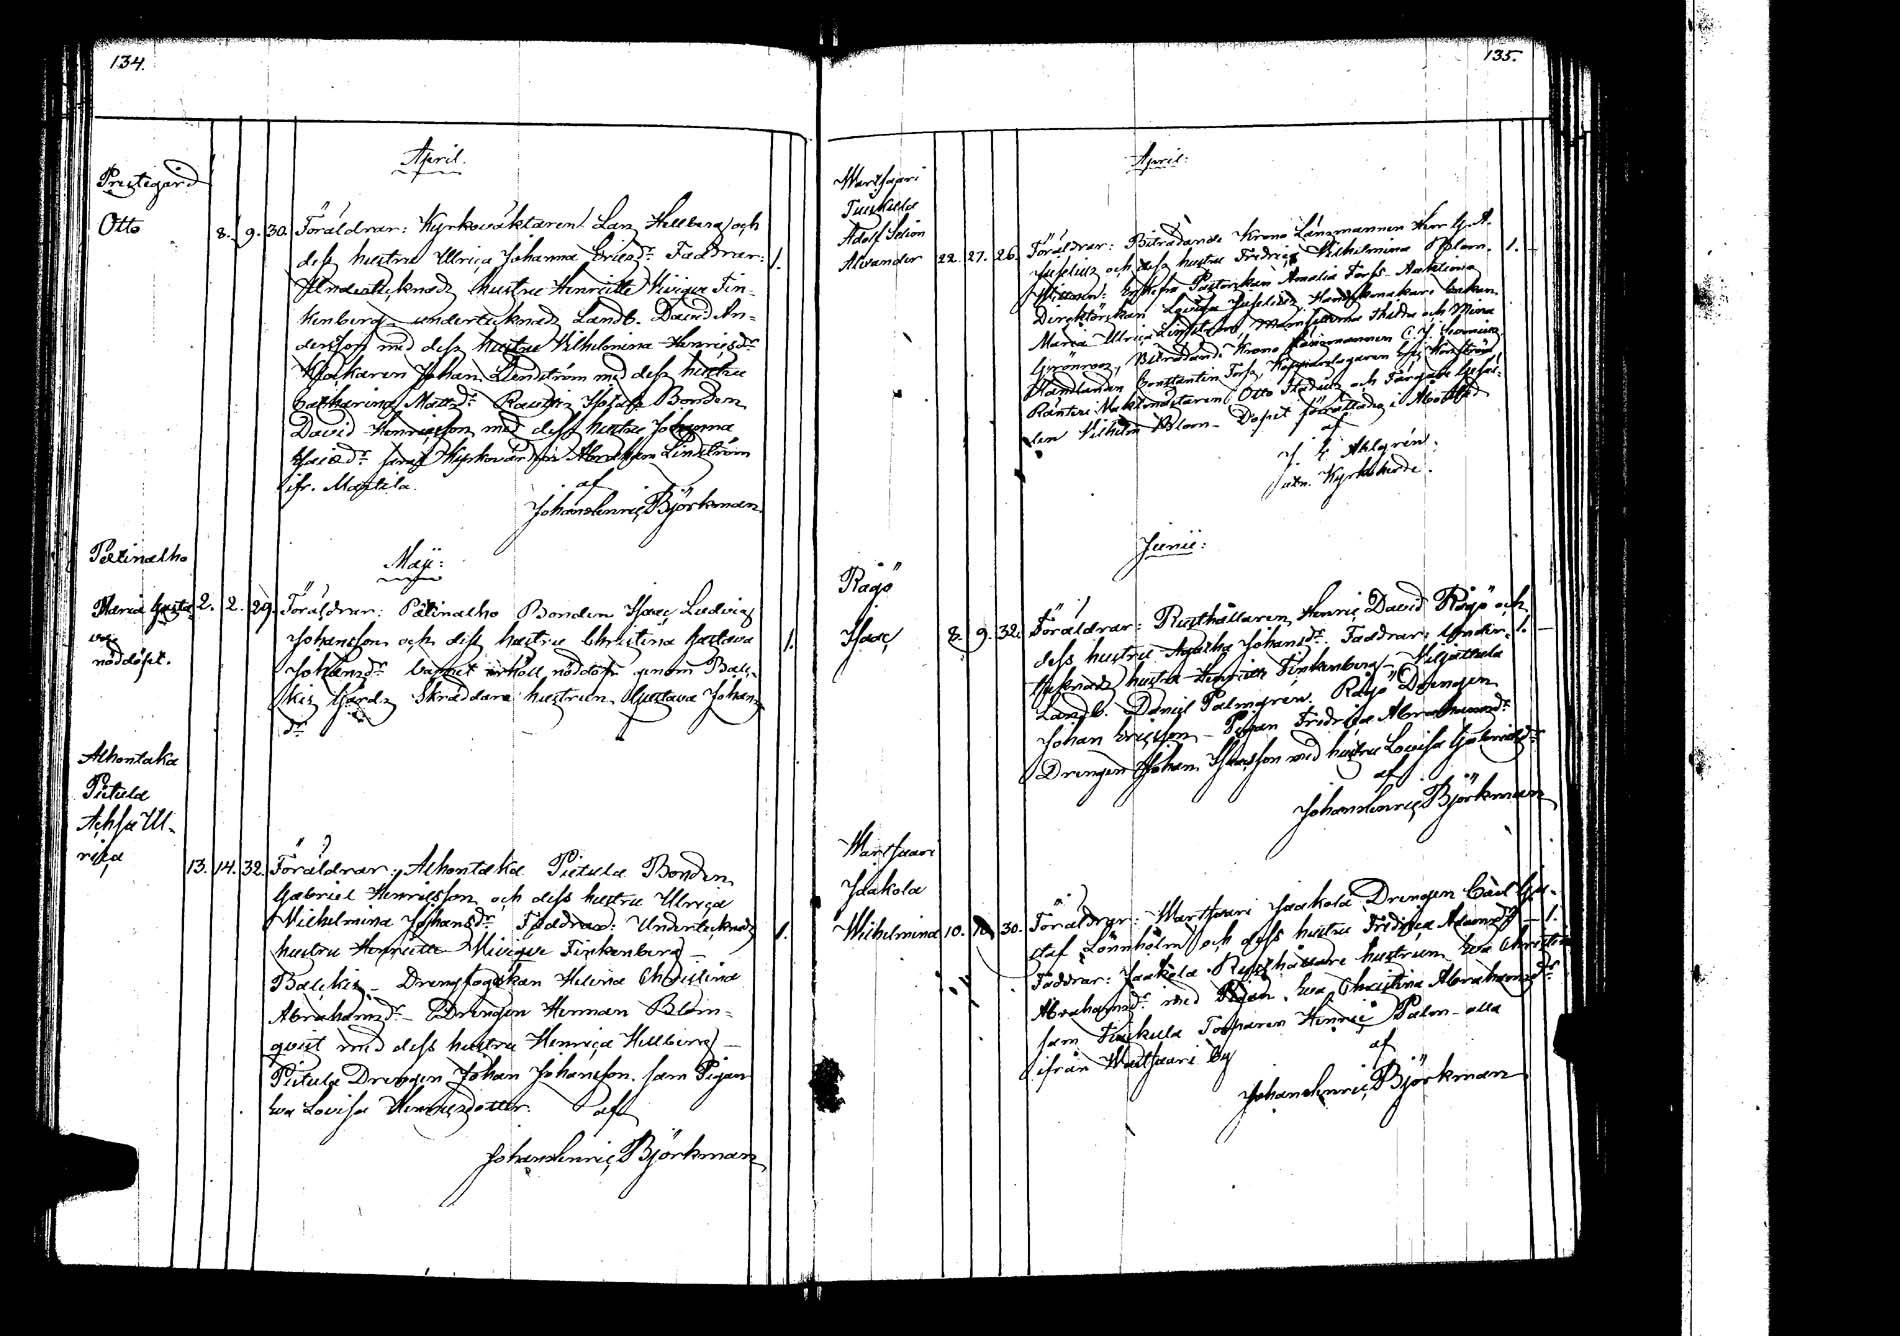 134.
April.
Prestegård
Otto 8. 9. 30. Föräldrar: Kyrkoväktaren Hellberg och
dess hustru Ulrica Johanna Ericsdr. Faddrar: 1.
Undertecknads hustru Henriette Vivique Fin-
kenberg undertecknads Landb. David An-
dersson med dess hustru Vilhelmina Henricsdr
Johan Lindström med dess hustru
Catharina Mattsdr Bonden
David Henricsson med dess hustru Johanna
Isacsdr samt Abraham Lindström
ifr. Marttila.
af
Johan Henric Björkman
Maji:
Pättinalho
Maria Gusta- 2. 2. 29. Föräldrar: Pätinalho Bonden Isaac Ludvig
va
nöddöpt.
Johansson och dess hustru Christina Gustava 1.
Johansdr barnet erhöll nöddop genom Balc-
kis Gårds Skräddare hustrun Gustava Johans
dr
Alhontaka
Pietula
Achsa Ul-
rica 13. 14. 32. Föräldrar: Alhontaka Pietula Bonden
Gabriel Henricsson och dess hustru Ulrica
Wilhelmina Johansdr Faddrar: Undertecknads 1.
hustru Henriette Vivique Finkenberg –
Balckis – Christina
Abrahamsdr – Drengen Herman Blom-
qvist med dess hustru Henrica Hellberg –
Pietula Drengen Johan Johansson sam Pigan
Eva Lovisa Henricsdotter. af
Johan Henric Björkman
135.
April:
Wartsaari
Tuiskula
Adolf
Alexander 22. 27. 26. Föräldrar: Biträdande Krono Länsmannen Herr G. A. 1. –
Juselius och dess hustru Fredrica Vilhelmina Blom.
Amalia Forss
Lovisa Juselius
Maria Ulrica Lindström, Mamsellerna Thilda och Mina
Grönroos, Biträdande Krono Länsmannen C. J.
Handlanden Constantin Forss, Kopparslagaren
Otto och Färgare Gesäl-
len Vilhelm Blom – Dopet förrättades i Åbo
af
J. E. Ahlgrén.
Kyrkoherde.
Junii:
Ragö
Isaac 8. 9. 32. Föräldrar: Rusthållaren Henric David Rågö och 1. –
dess hustru Agatha Johansdr. Faddrar: Under-
tecknads hustru Henriette Finkenberg –
Landb. Daniel Palmgren. Rågö Drengen
Johan Ericsson – Pigan Fredrica Abrahamsdr
Drengen Johan Isacsson med hustru Lovisa Gabrielsdr
af
Johan Henric Björkman
Wartsaari
Jaakola
Wilhelmina 10. 10. 30. Föräldrar: Wartsaari Jaakola Drengen Carl Gu- – 1.
staf Lönnholm och dess hustru Fredrica Adamsdr
Faddrar: Jaakola Rusthållare hustrun Eva Christina
Abrahamsdr med Pigan Eva Christina Abrahamsdr
sam Tuiskula Torparen Henric Palm – alla
ifrån Wartsaari by af
Johan Henric Björkman